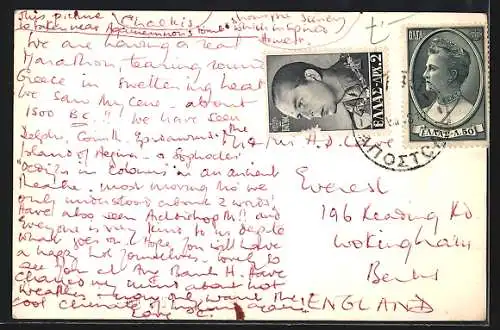 This picture
is taken near Agamemnon's tomb
Chalkis
We are having a real
Marathon tearing round
Greece in sweltering heat
We saw Mycene - about
1500 B.C.!! We have seen
Delphi, Corinth, Epidavros, the
Island of Aegina - & Sophocles'
"Oedipus in Colonus" in an ancient
theatre - most moving tho' we
only understood about 2 words!
Have also seen Archbishop M!! and
everyone is very kind to us despite
what goes on. I hope you will have
a happy hol yourselves. Lovely to
see you at Ave Bank H. Have
changed my mind about hot
weather - now only want the
cool climate of England again!
Love
H.D.
Everest
196 Reading Rd
Wokingham
Berks
ENGLAND
ΕΛΛΑΣ-ΔΡΧ.2
ΟΛΓΑ
ΕΛΛΑΣ-Λ.50